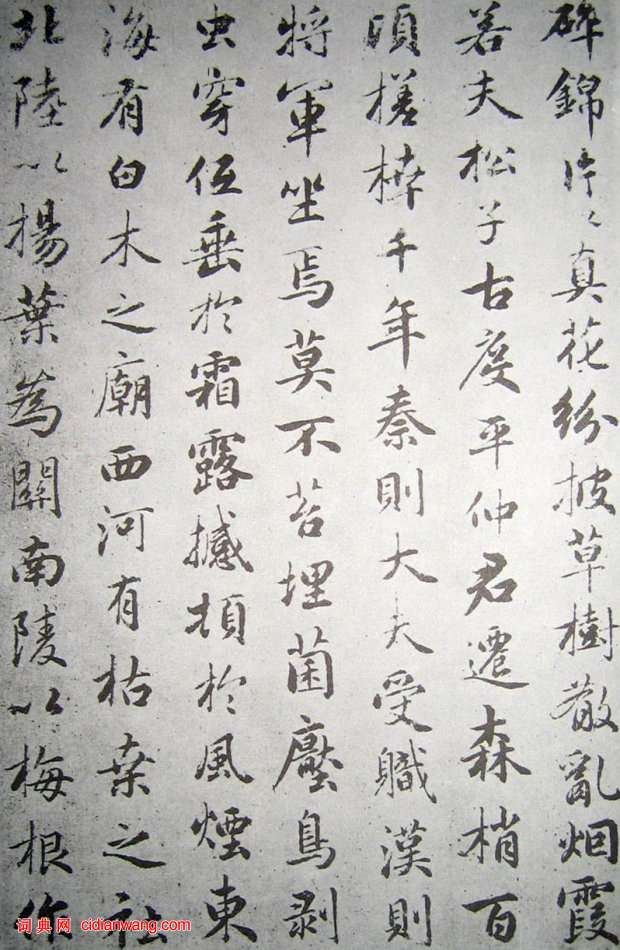 碎錦片々真花紛披草樹散亂烟霞
若夫松子古度平仲君遷森梢百
頃槎枿千年秦則大夫受職漢則
將軍坐焉莫不苔埋菌壓鳥剥
虫穿低垂於霜露撼頓於風煙東
海有白木之廟西河有枯桒之社
北陸以楊葉為關南陵以梅根作
词典网 cidianwang.com